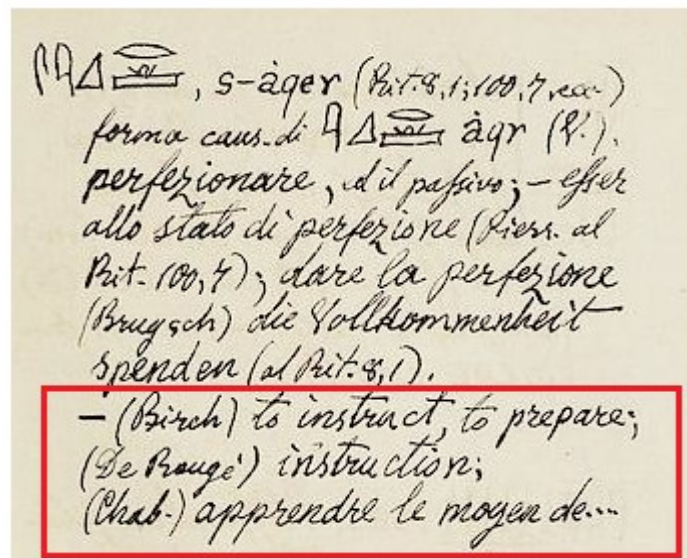 𓋴𓇋𓈎𓂋𓏛, s-àqer (Rit. 8, 1; 100, 7, ecc)
forma caus. di 𓇋𓈎𓂋𓏛 àqr (V.).
perfezionare, ed il passivo; — esser
allo stato di perfezione (Pierr. al
Rit. 100, 7); dare la perfezione
(Brugsch) die Vollkommenheit
spenden (al Rit. 8, 1).
— (Birch) to instruct, to prepare;
(De Rougé) instruction;
(Chab.) apprendre le moyen de...